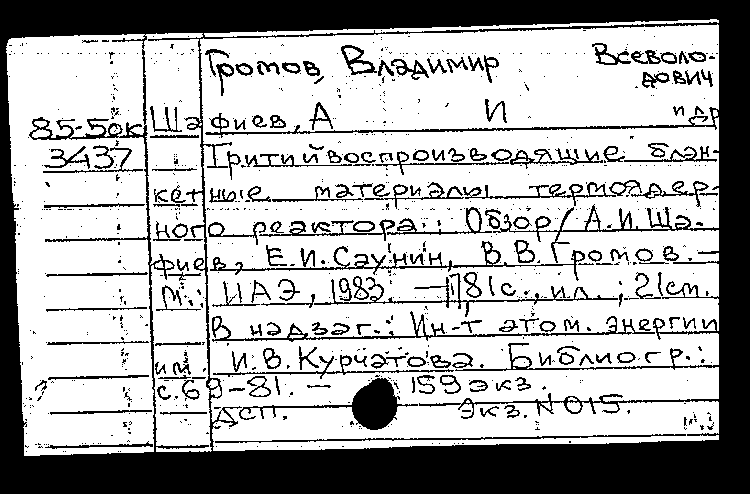 Громов, Владимир Всеволо-
дович
85-5ок Шафиев, А И и др
3437 Тритийвоспроизводящие блан-
кетные материалы термоядер-
ного реактора.: Обзор/ А.И.Ша-
фиев, Е.И.Саунин, В.В.Громов.—
М.: ИАЭ, 1983. — 81с., ил.; 21см.
В надзаг.: Ин-т атом. энергии
им. И.В.Курчатова. Библиогр.:
с.69-81. — 159экз.
ДСП. Экз.N015.